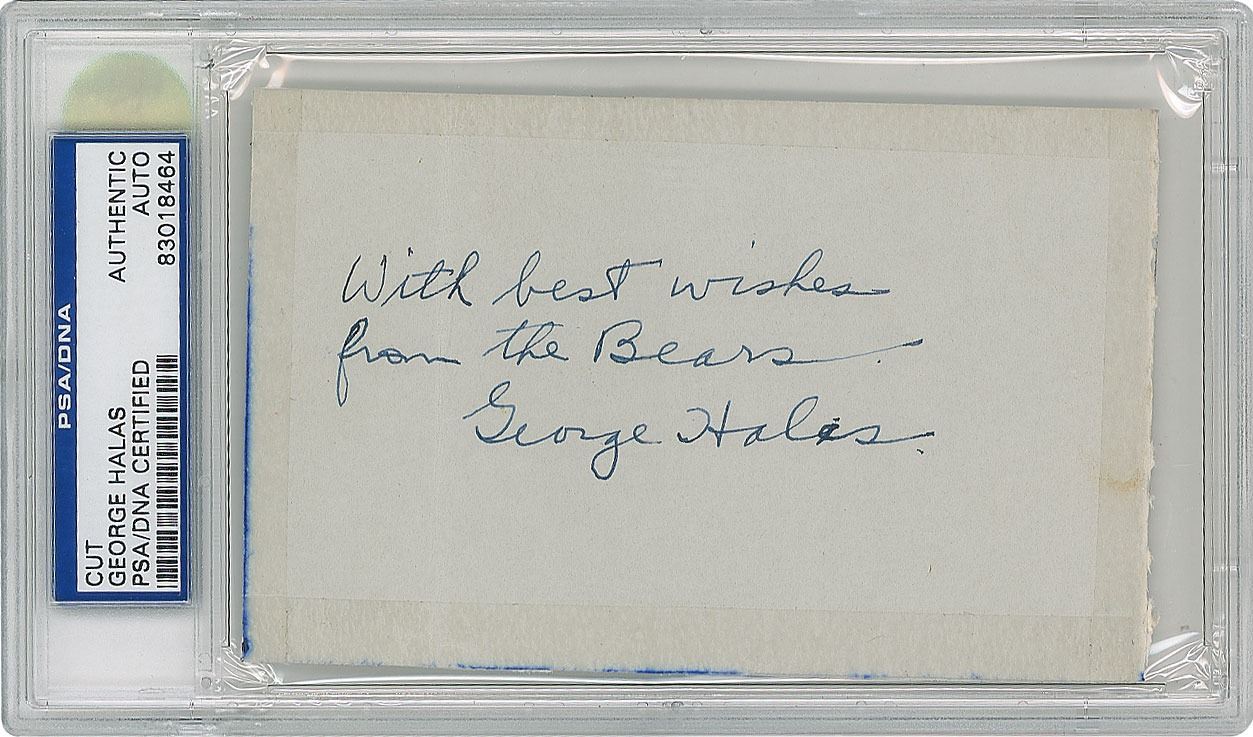 PSA/DNA
CUT
GEORGE HALAS
PSA/DNA CERTIFIED
AUTHENTIC
AUTO
83018464
With best wishes
from the Bears.
George Halas.